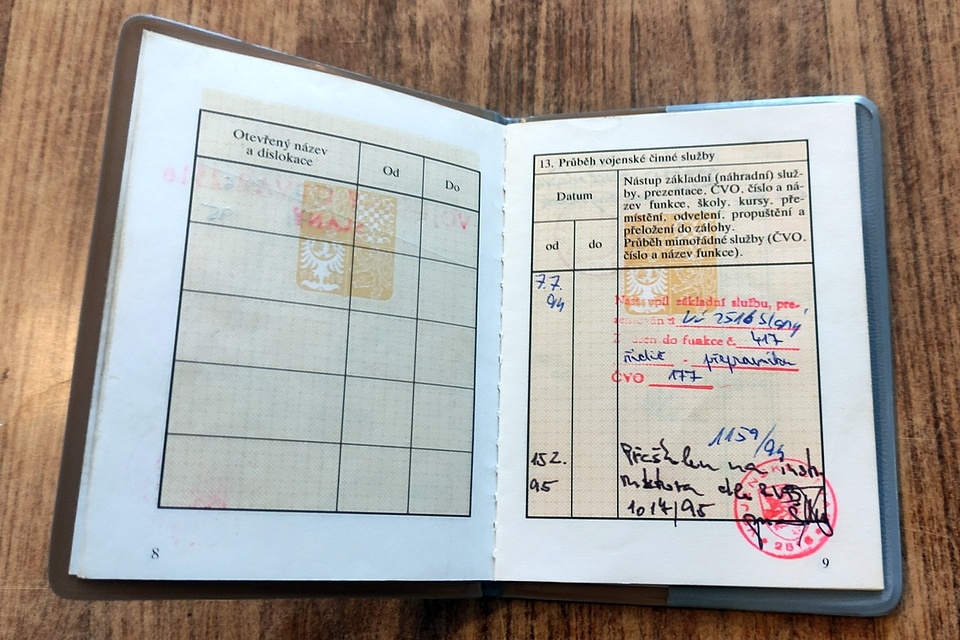 Otevřený název
a dislokace
Od
Do
8
13. Průběh vojenské činné služby
Datum
od
do
Nástup základní (náhradní) služ-
by, prezentace, ČVO, číslo a ná-
zev funkce, školy, kursy, pře-
místění, odvelení, propuštění a
přeložení do zálohy.
Průběh mimořádné služby (ČVO,
číslo a název funkce).
7.7.
94
Nastoupil základní službu, pre-
VÚ 2516 Slaný
do funkce č. 417
řidič - přepravník
ČVO 177
1159/94
15 2.
95
na
dle
1014/95
9